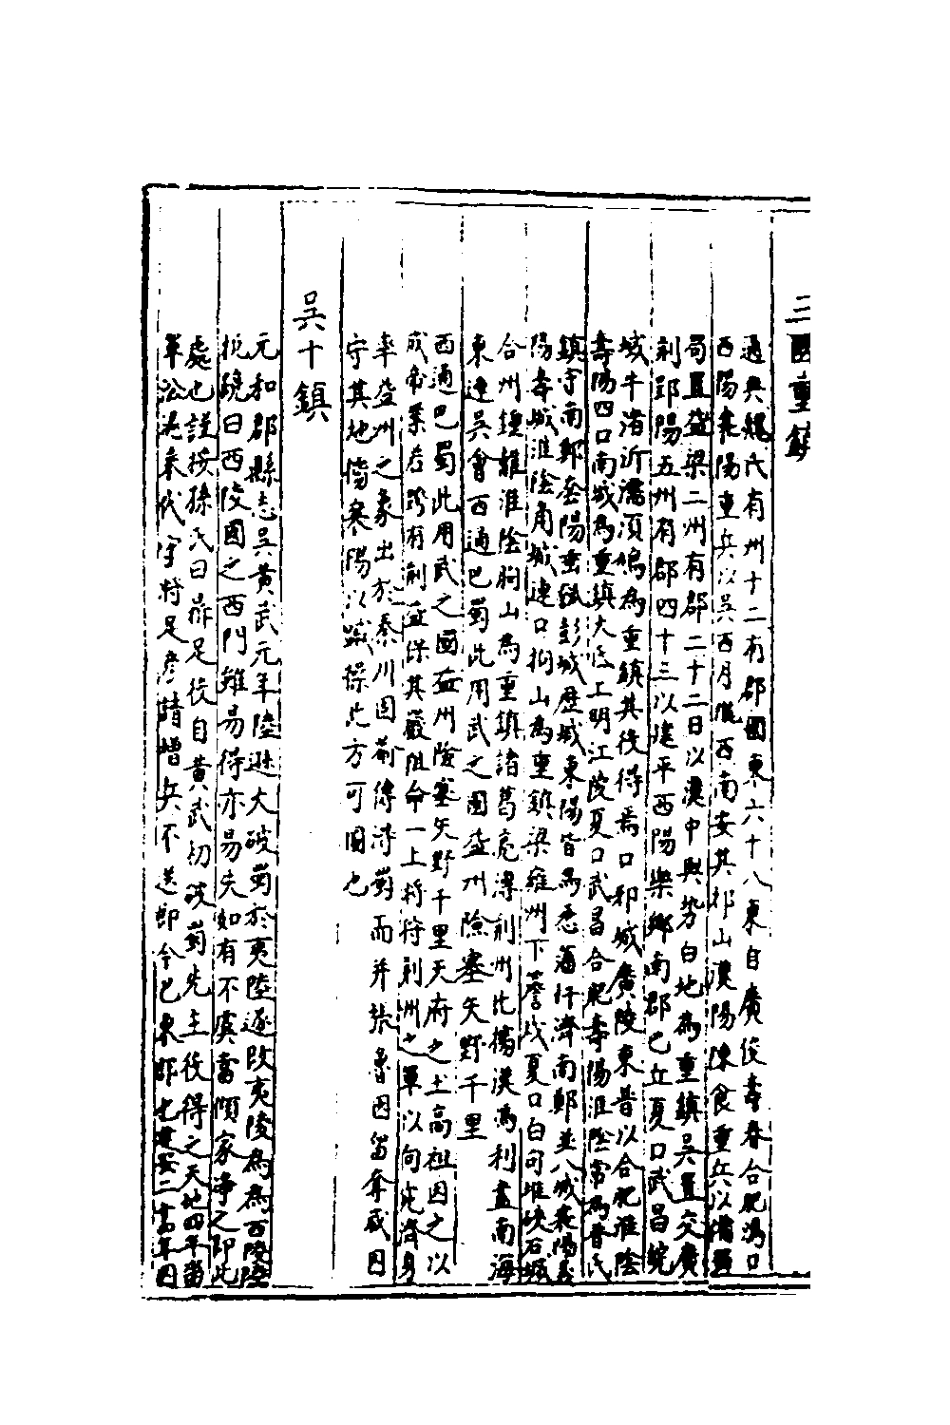 三國重鎮
通典魏氏有州十二有郡國東六十八東自廣陵壽春合肥沔口
西陽襄陽重兵以吳西月隴西南安其祁山漢陽陳倉重兵以備蜀
蜀置益梁二州有郡二十二日以漢中興勢白地為重鎮吳置交廣
荊郢陽五州有郡四十三以建平西陽樂鄉南郡巴丘夏口武昌皖
城牛渚沂濡須塢為重鎮其後得焉口邾城廣陵東晉以合肥淮陰
壽陽四口南城為重鎮大江明江陵夏口武昌合肥壽陽淮陰常為晉氏
鎮守南鄭 陽 彭城歷城東陽皆為 南鄭並八城襄陽
陽壽城淮陰角城連口朐山為重鎮梁雍州下 戍夏口白可堆硤石城
合州鍾離淮陰朐山為重鎮諸葛亮 荊州北據漢沔利盡南海
東連吳會西通巴蜀此用武之國益州險塞矢野千里
西通巴蜀此用武之國益州險塞矢野千里天府之土高祖因之以
成帝業若跨有荊益保其巖阻命一上將將荊州之軍以向宛洛身
率益州之象出於秦川因 得蜀而并張魯因 奔 因
守其地備襄陽以 保 方可圖也
吳十鎮
元和郡縣志吳黃武元年陸遜大破蜀於夷陵遂改夷陵為為西陵
抗 曰西陵國之西門雖易得亦易失如有不虞當傾家爭之即此
處也謹按孫氏曰 足後自黃武初破蜀先主後得之天地四年
軍公 代守將足彥請增兵不 即今巴東郡也建安二十四年因